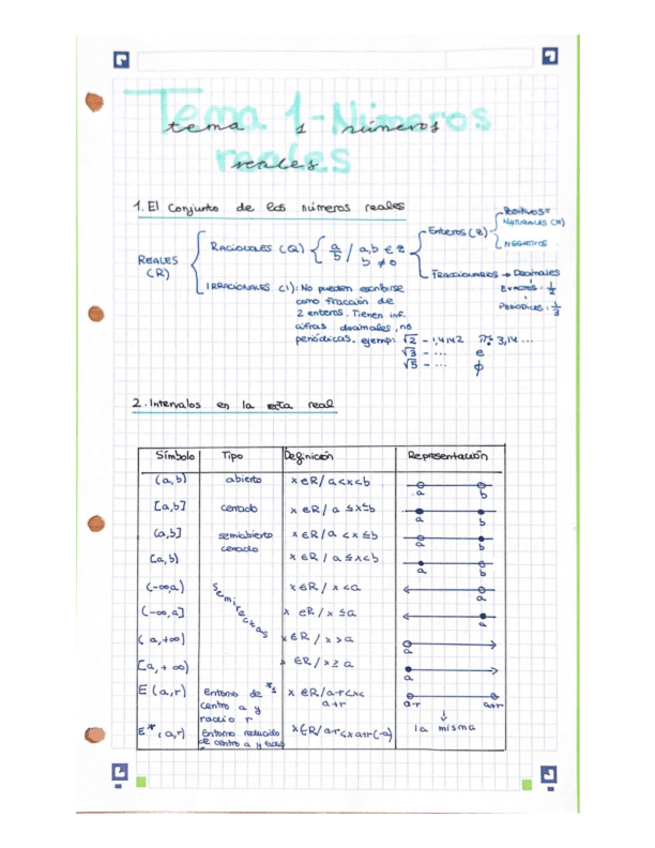 Tema 1-Números
tema 1 números
reales
reales
1. El conjunto de los números reales
REALES
(R)
RACIONALES (Q) { a/b / a,b ∈ Z
b ≠ 0
Enteros (Z)
Positivos=
NATURALES (N)
NEGATIVOS
FRACCIONARIOS → Decimales
EXACTOS: 1/2
PERIÓDICOS: 1/3
IRRACIONALES (I): No pueden escribirse
como fracción de
2 enteros. Tienen inf.
cifras decimales, no
periódicas. ejemp: √2 - 1,4142 π: 3,14...
√3 - ... e
√5 - ... ϕ
2. Intervalos en la recta real
Símbolo Tipo Definición Representación
(a,b) abierto x ∈ R / a<x<b a b
[a,b] cerrado x ∈ R / a ≤x≤b a b
(a,b] semiabierto x ∈ R / a < x ≤b a b
cerrado
[a,b) x ∈ R / a ≤x<b a b
(-∞,a) Semirectas x ∈ R / x <a a
(-∞,a] x ∈ R / x ≤a a
(a,+∞) x ∈ R / x >a a
[a,+∞) x ∈ R / x ≥ a a
E (a,r) entorno de *1 x ∈ R / a-r<x< a-r a+r
centro a y a+r
radio r
E* (a,r) Entorno reducido x ∈ R / a-r<x a+r(-a) la misma
de centro a y radio